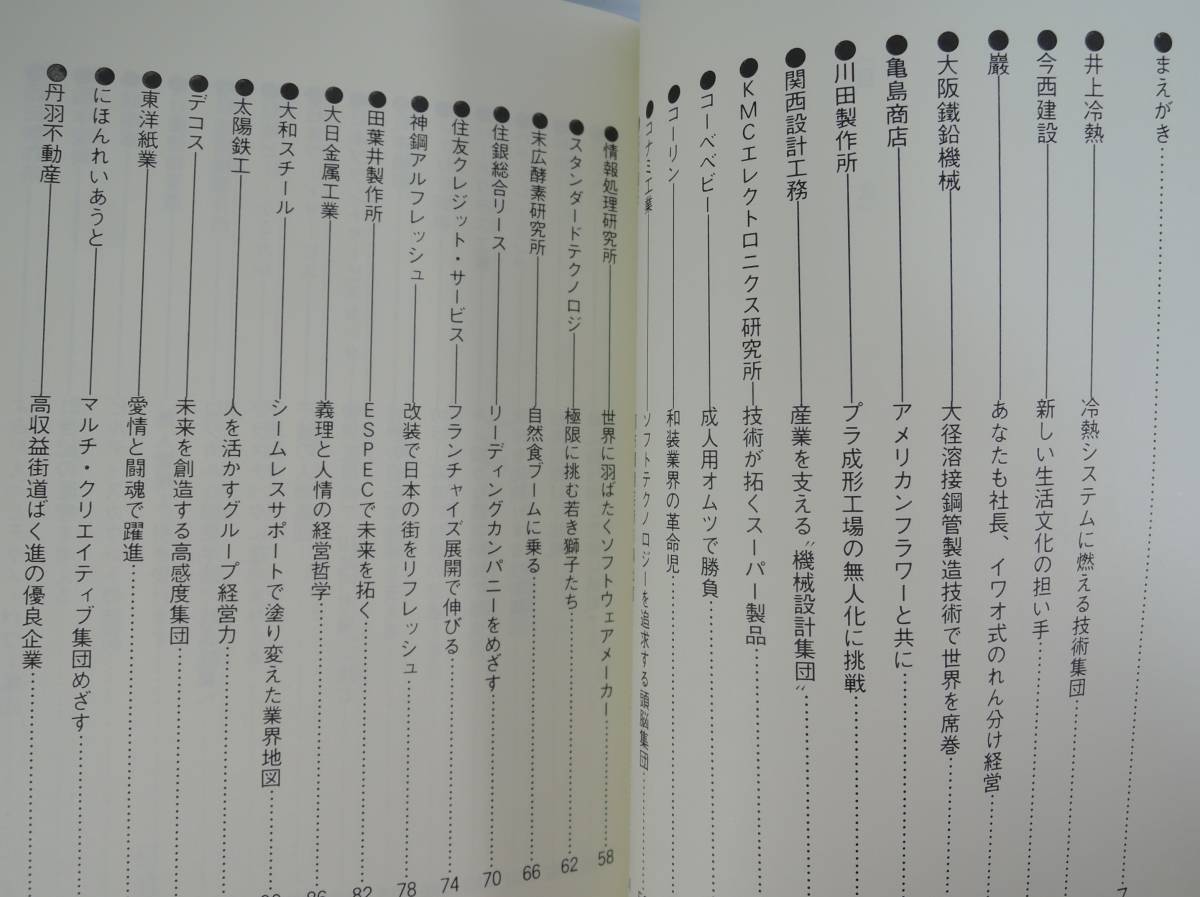 ●まえがき……7
●井上冷熱――冷熱システムに燃える技術集団……
●今西建設――新しい生活文化の担い手……
●巌――あなたも社長、イワオ式のれん分け経営……
●大阪鐵鉛機械――大径溶接鋼管製造技術で世界を席巻……
●亀島商店――アメリカンフラワーと共に……
●川田製作所――プラ成形工場の無人化に挑戦……
●関西設計工務――産業を支える〝機械設計集団〟……
●KMCエレクトロニクス研究所――技術が拓くスーパー製品……
●コーベベビー――成人用オムツで勝負……
●コーリン――和装業界の革命児……
●コナミ工業――ソフトテクノロジーを追求する頭脳集団……
●情報処理研究所――世界に羽ばたくソフトウェアメーカー……58
●スタンダードテクノロジ――極限に挑む若き獅子たち……62
●末広酵素研究所――自然食ブームに乗る……66
●住銀総合リース――リーディングカンパニーをめざす……70
●住友クレジット・サービス――フランチャイズ展開で伸びる……74
●神鋼アルフレッシュ――改装で日本の街をリフレッシュ……78
●田葉井製作所――ESPECで未来を拓く……82
●大日金属工業――義理と人情の経営哲学……86
●大和スチール――シームレスサポートで塗り変えた業界地図……
●太陽鉄工――人を活かすグループ経営力……
●デコス――未来を創造する高感度集団……
●東洋紙業――愛情と闘魂で躍進……
●にほんれいあうと――マルチ・クリエイティブ集団めざす……
●丹羽不動産――高収益街道ばく進の優良企業……